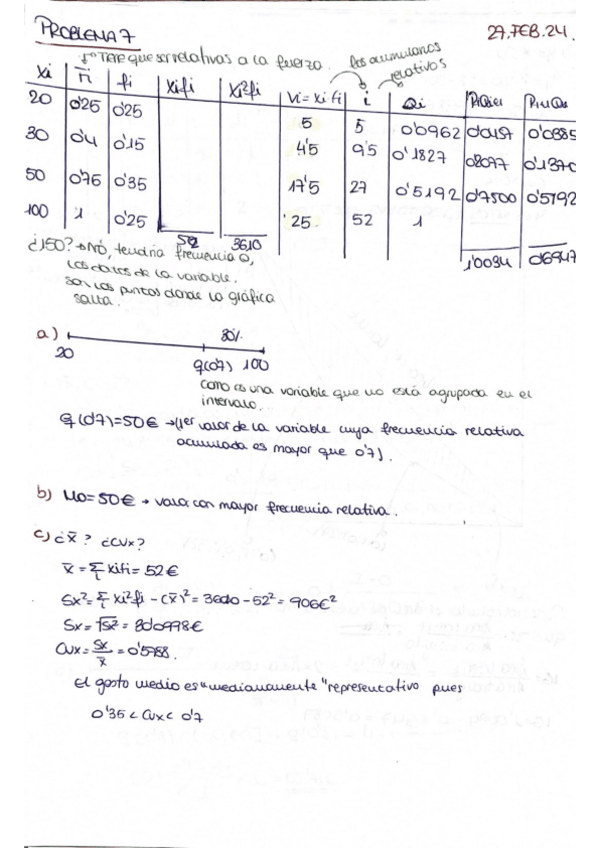 PROBLEMA 7
27.FEB.24
Tiene que ser relativas a la fuerza.
los acumulamos
relativos
Xi Fi fi Xifi Xi²fi Vi=Xifi i Qi
20 0'25 0'25 5 5 0'0962
30 0'4 0'15 4'5 9'5 0'1827
50 0'75 0'35 17'5 27 0'5192 0'7500 0'5192
100 1 0'25 25 52 1
52 3610
1'0034
¿150? → NO, tendría frecuencia 0,
los datos de la variable.
son los puntos donde la gráfica
salta.
a)
30%
20 q(0'7) 100
como es una variable que no está agrupada en el
intervalo...
q(0'7)=50€ → (1er valor de la variable cuya frecuencia relativa
acumulada es mayor que 0'7).
b) Mo=50€ → valor con mayor frecuencia relativa.
c) ¿x̄? ¿CVx?
x̄ = Σ xifi = 52€
Sx² = Σ xi²fi - (x̄)² = 3610 - 52² = 906€²
Sx = √Sx² = 30'0998€
CVx = Sx/x̄ = 0'5788.
El gasto medio es "medianamente" representativo pues
0'35 < CVx < 0'7